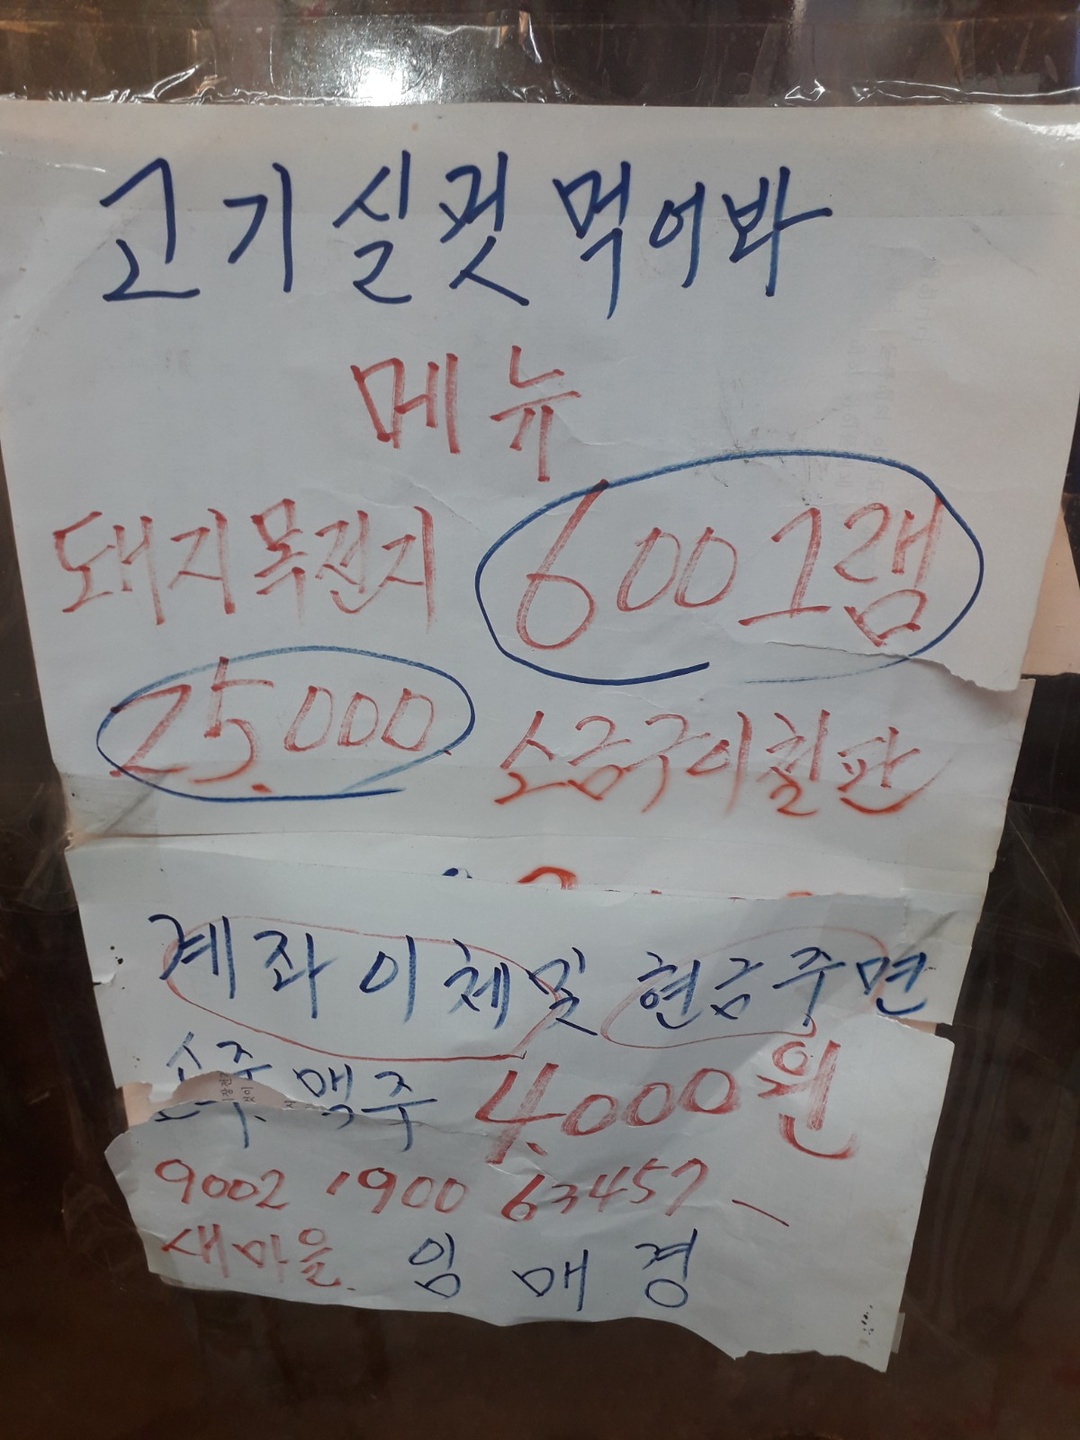 고기실컷먹어봐
메뉴
돼지목전지 600그램
25.000 소금구이철판
계좌이체및 현금주면
소주 맥주 4.000원
9002 1900 63457
새마을 임매경